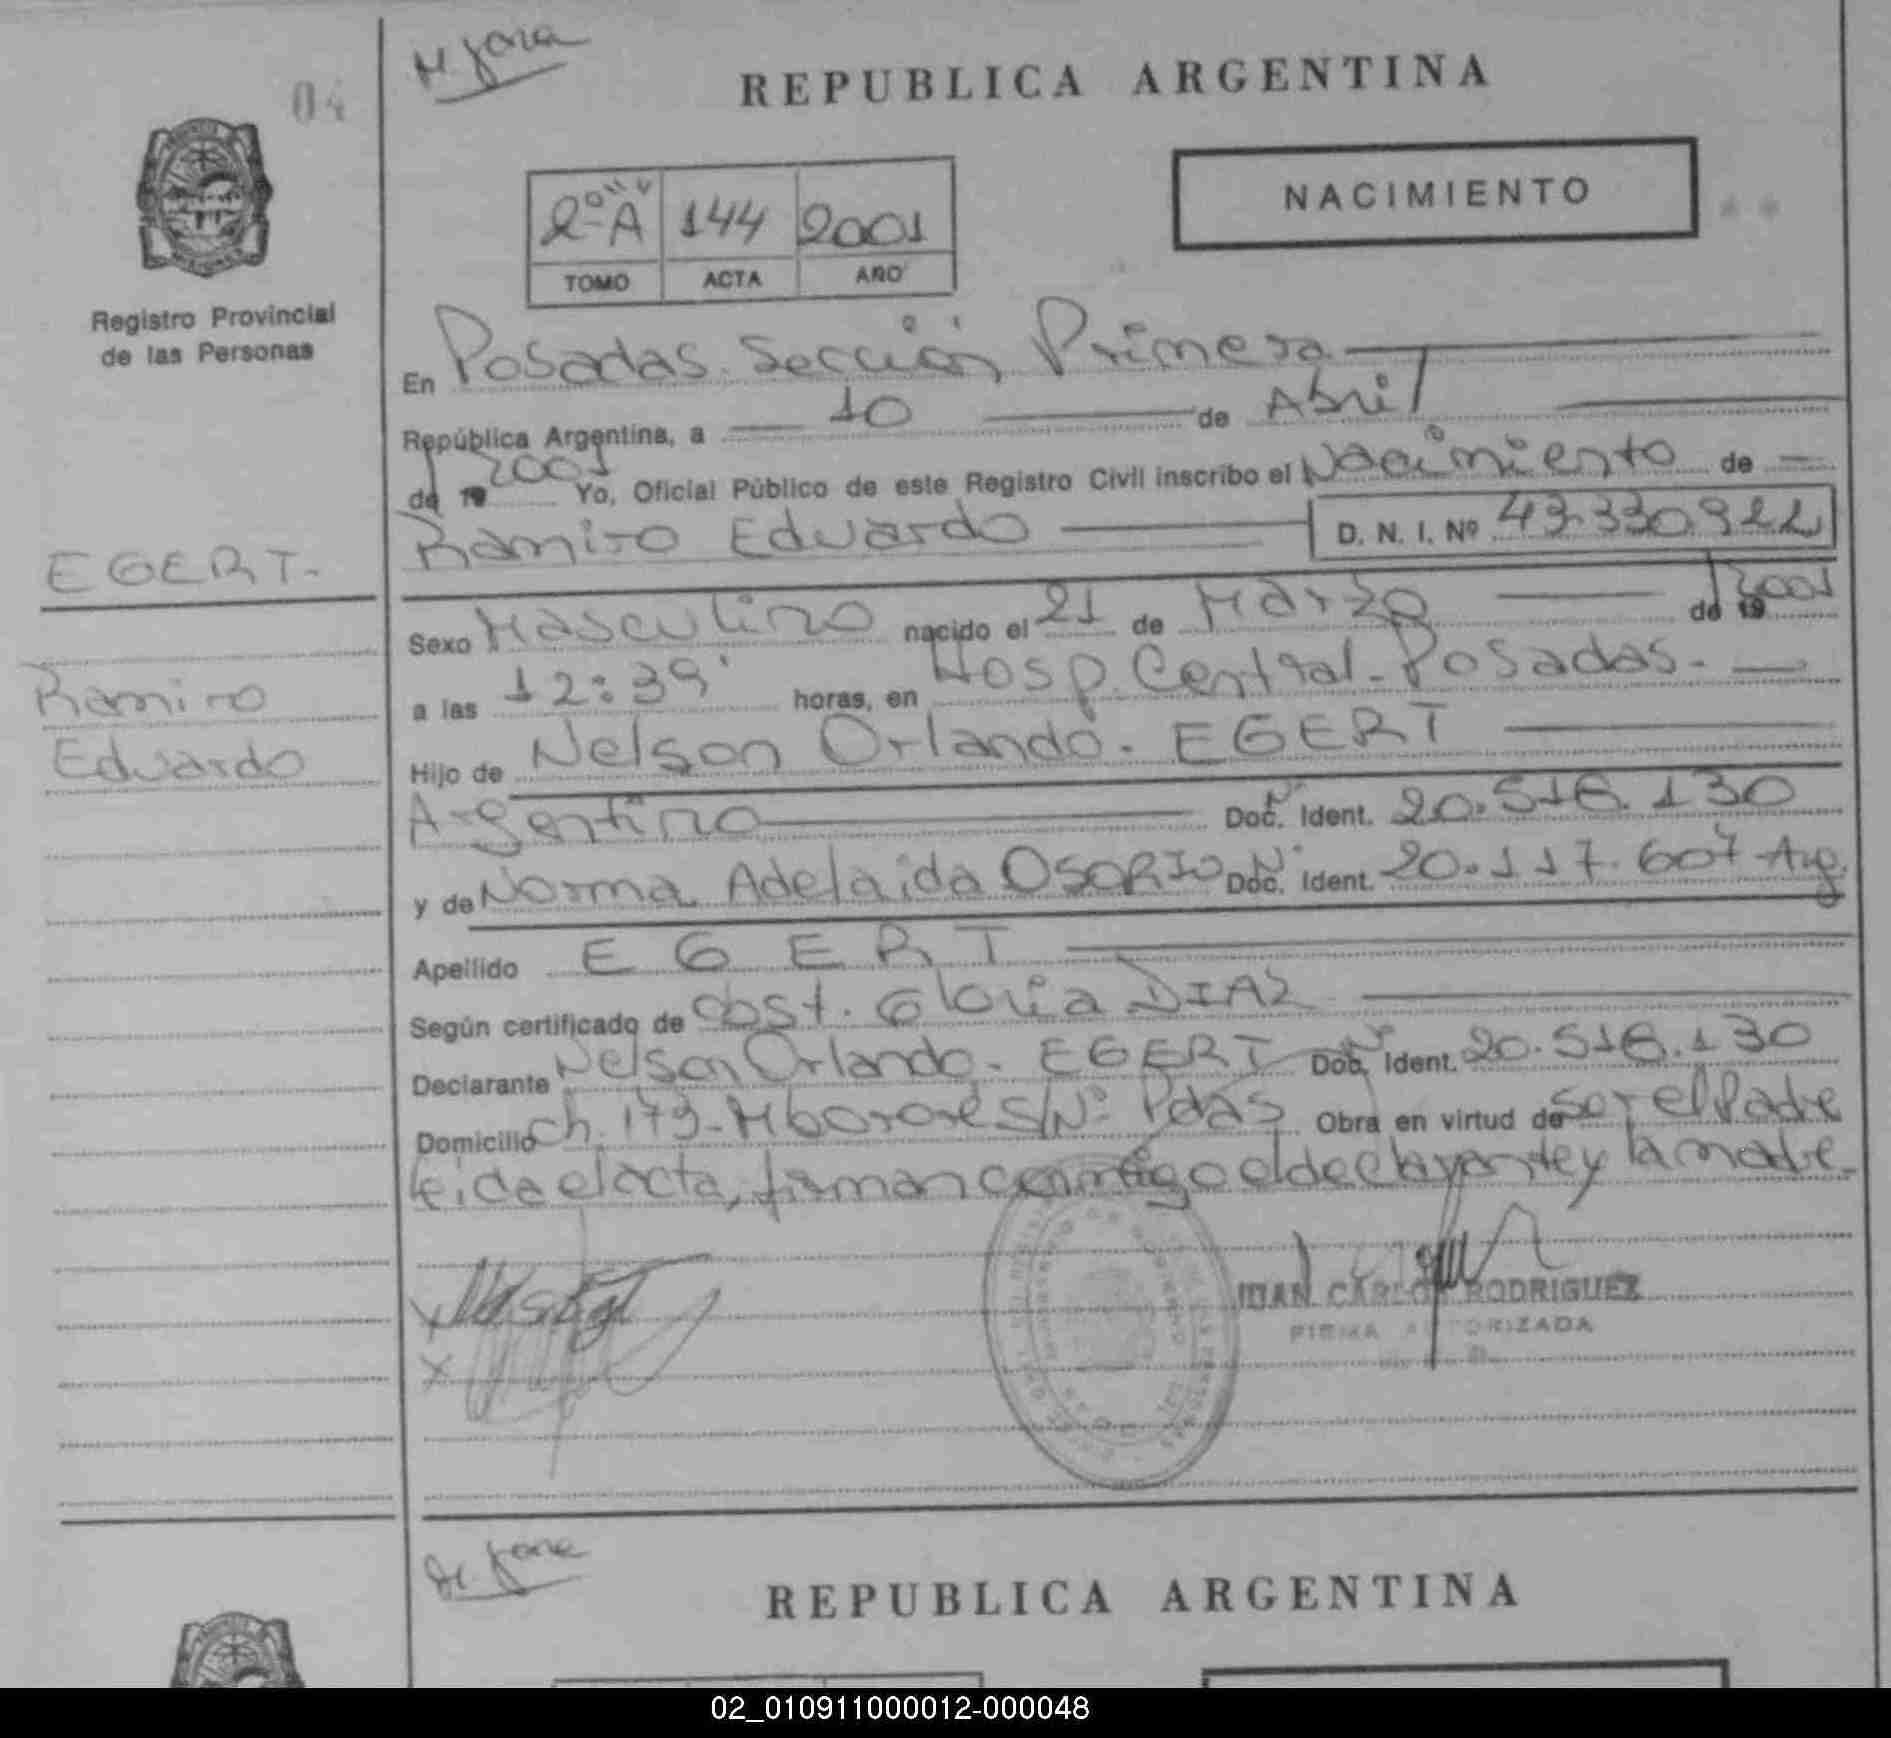 04
REPUBLICA ARGENTINA
NACIMIENTO
2º "A" 144 2001
TOMO ACTA AÑO
Registro Provincial
de las Personas
En Posadas. Sección Primera
República Argentina, a 10 de Abril
del 2001 Yo, Oficial Público de este Registro Civil inscribo el Nacimiento de
Ramiro Eduardo D. N. I. Nº 43.330.922
EGERT.
Sexo Masculino nacido el 21 de Marzo del 2001
Ramiro
a las 12:39' horas, en Hosp. Central - Posadas.
Eduardo
Hijo de Nelson Orlando. EGERT
Argentino Doc. Nº Ident. 20.516.130
y de Norma Adelaida OSORIO Doc. Nº Ident. 20.117.607 Arg.
Apellido EGERT
Según certificado de Obst. Gloria DIAZ
Declarante Nelson Orlando - EGERT Doc. Nº Ident. 20.516.130
Domicilio Ch. 179 - Mbororé S/Nº Pdas Obra en virtud de ser el Padre
leida el acta, firman conmigo el declarante y la madre.
JUAN CARLOS RODRIGUEZ
FIRMA AUTORIZADA
REPUBLICA ARGENTINA
02_010911000012-000048